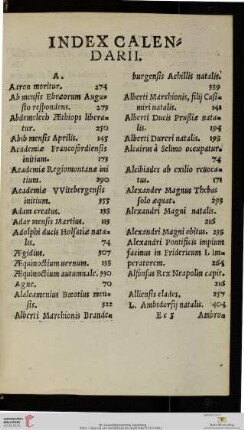 INDEX CALEN=
DARII.
A.
Aaron moritur. 274
Ab mensis Ebraeorum Augu-
sto respondens. 275
Abdemelech Æthiops libera-
tur. 250
Abib mensis Aprilis. 145
Academiæ Francofordiensis
initium. 175
Academiæ Regiomontanæ ini
tium. 290
Academiæ VVitebergensis
initium. 355
Adam creatus. 195
Adar mensis Martius. 115
Adolphi ducis Holsatiæ nata-
lis. 74
Ægidius. 307
Æquinoctium vernum. 135
Æquinoctium autumnale. 330
Agne. 70
Alalcamenius Bœotius men-
sis. 322
Alberti Marchionis Brande=
burgensis Achillis natalis.
359
Alberti Marchionis, filij Casi-
miri natalis. 142
Alberti Ducis Prussiæ nata-
lis. 194
Alberti Dureri natalis. 193
Alcairus à Selimo occupatur.
74
Alcibiades ab exilio reuoca-
tus. 171
Alexander Magnus Thebas
solo æquat. 293
Alexandri Magni natalis.
216
Alexandri Magni obitus. 235
Alexandri Pontificis impium
facinus in Fridericum I. Im
peratorem. 264
Alfonsus Rex Neapolin capit.
216
Alliensis clades. 257
L. Ambsdorfij natalis. 404
Ee 5 Ambro=